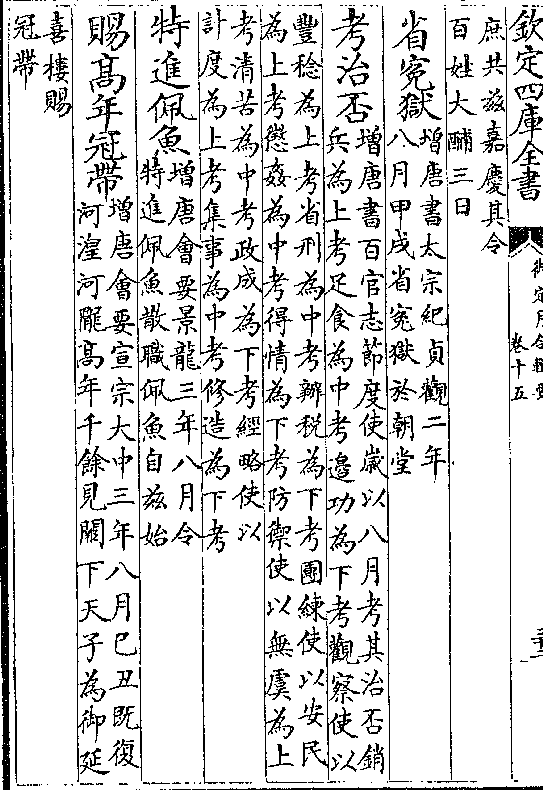 欽定四庫全書
御定月令輯要
卷十五
庶共兹嘉慶其令
百姓大酺三日
省寃獄
增唐書太宗紀貞觀二年
八月甲戌省寃獄於朝堂
考治否
增唐書百官志節度使歲以八月考其治否銷
兵為上考足食為中考邉功為下考觀察使以
豐稔為上考省刑為中考辦税為下考團練使以安民
為上考懲姦為中考得情為下考防禦使以無虞為上
考清苦為中考政成為下考經略使以
計度為上考集事為中考修造為下考
特進佩魚
增唐會要景龍三年八月令
特進佩魚散職佩魚自兹始
賜髙年冠帶
增唐會要宣宗大中三年八月己丑既復
河湟河隴髙年千餘見闕下天子為御延
喜樓賜
冠帶